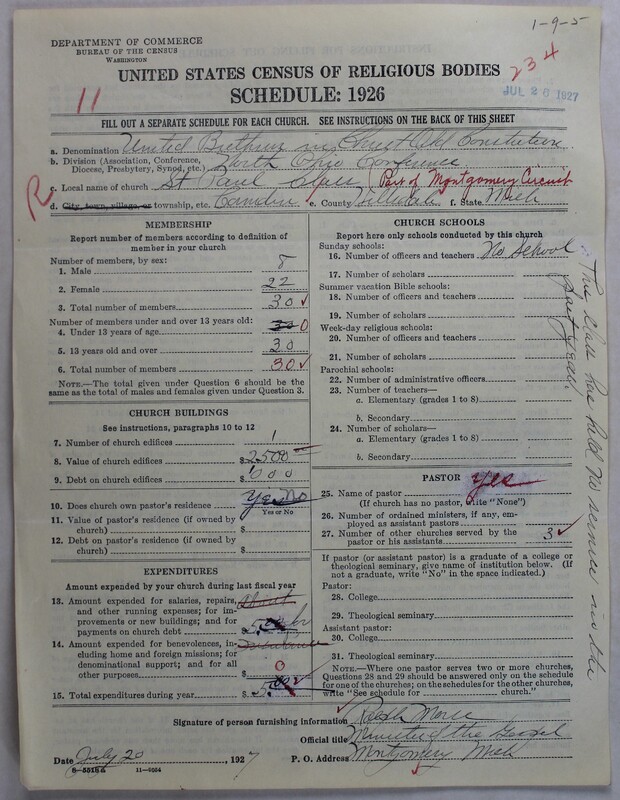 1-9-5
DEPARTMENT OF COMMERCE
BUREAU OF THE CENSUS
WASHINGTON
234
JUL 26 1927
UNITED STATES CENSUS OF RELIGIOUS BODIES
11
SCHEDULE: 1926
FILL OUT A SEPARATE SCHEDULE FOR EACH CHURCH. SEE INSTRUCTIONS ON THE BACK OF THIS SHEET
a. Denomination United Brethren in Christ Old Constitution
b. Division (Association, Conference, Diocese, Presbytery, Synod, etc.) North Ohio Conference
c. Local name of church St Paul Class (Part of Montgomery Circuit
R
d. City, town, village, or township, etc. Camden e. County Hillsdale f. State Mich
MEMBERSHIP
Report number of members according to definition of
member in your church
Number of members, by sex:
1. Male 8
2. Female 22
3. Total number of members 30
Number of members under and over 13 years old:
4. Under 13 years of age 0
5. 13 years old and over 30
6. Total number of members 30
NOTE.—The total given under Question 6 should be
same as the total of males and females given under Question 3.
CHURCH BUILDINGS
See instructions, paragraphs 10 to 12
7. Number of church edifices 1
8. Value of church edifices $2500
9. Debt on church edifices $000
10. Does church own pastor's residence Yes No
Yes or No
11. Value of pastor's residence (if owned by
church) $
12. Debt on pastor's residence (if owned by
church) $
EXPENDITURES
Amount expended by your church during last fiscal year
13. Amount expended for salaries, repairs, about
and other running expenses; for im-
provements or new buildings; and for
payments on church debt $5.00
14. Amount expended for benevolences, in-
cluding home and foreign missions; for
denominational support; and for all
other purposes $ 0
15. Total expenditures during year $5.00
CHURCH SCHOOLS
Report here only schools conducted by this church
Sunday schools:
16. Number of officers and teachers No School
17. Number of scholars
Summer vacation Bible schools:
18. Number of officers and teachers
19. Number of scholars
Week-day religious schools:
20. Number of officers and teachers
21. Number of scholars
Parochial schools:
22. Number of administrative officers
23. Number of teachers—
a. Elementary (grades 1 to 8)
b. Secondary
24. Number of scholars—
a. Elementary (grades 1 to 8)
b. Secondary
This class has held no service in the
past year
PASTOR
25. Name of pastor yes
(If church has no pastor, write "None")
26. Number of ordained ministers, if any, em-
ployed as assistant pastors
27. Number of other churches served by the
pastor or his assistants 3
If pastor (or assistant pastor) is a graduate of a college or
theological seminary, give name of institution below. (If
not a graduate, write "No" in the space indicated.)
Pastor:
28. College
29. Theological seminary
Assistant pastor:
30. College
31. Theological seminary
NOTE.—Where one pastor serves two or more churches,
Questions 28 and 29 should be answered only on the schedule
for one of the churches; on the schedules for the other churches,
write "See schedule for church."
Signature of person furnishing information Ralph
Official title Minister of the Gospel
Date July 20, 1927 P. O. Address Montgomery Mich
8-5518a 11-9664